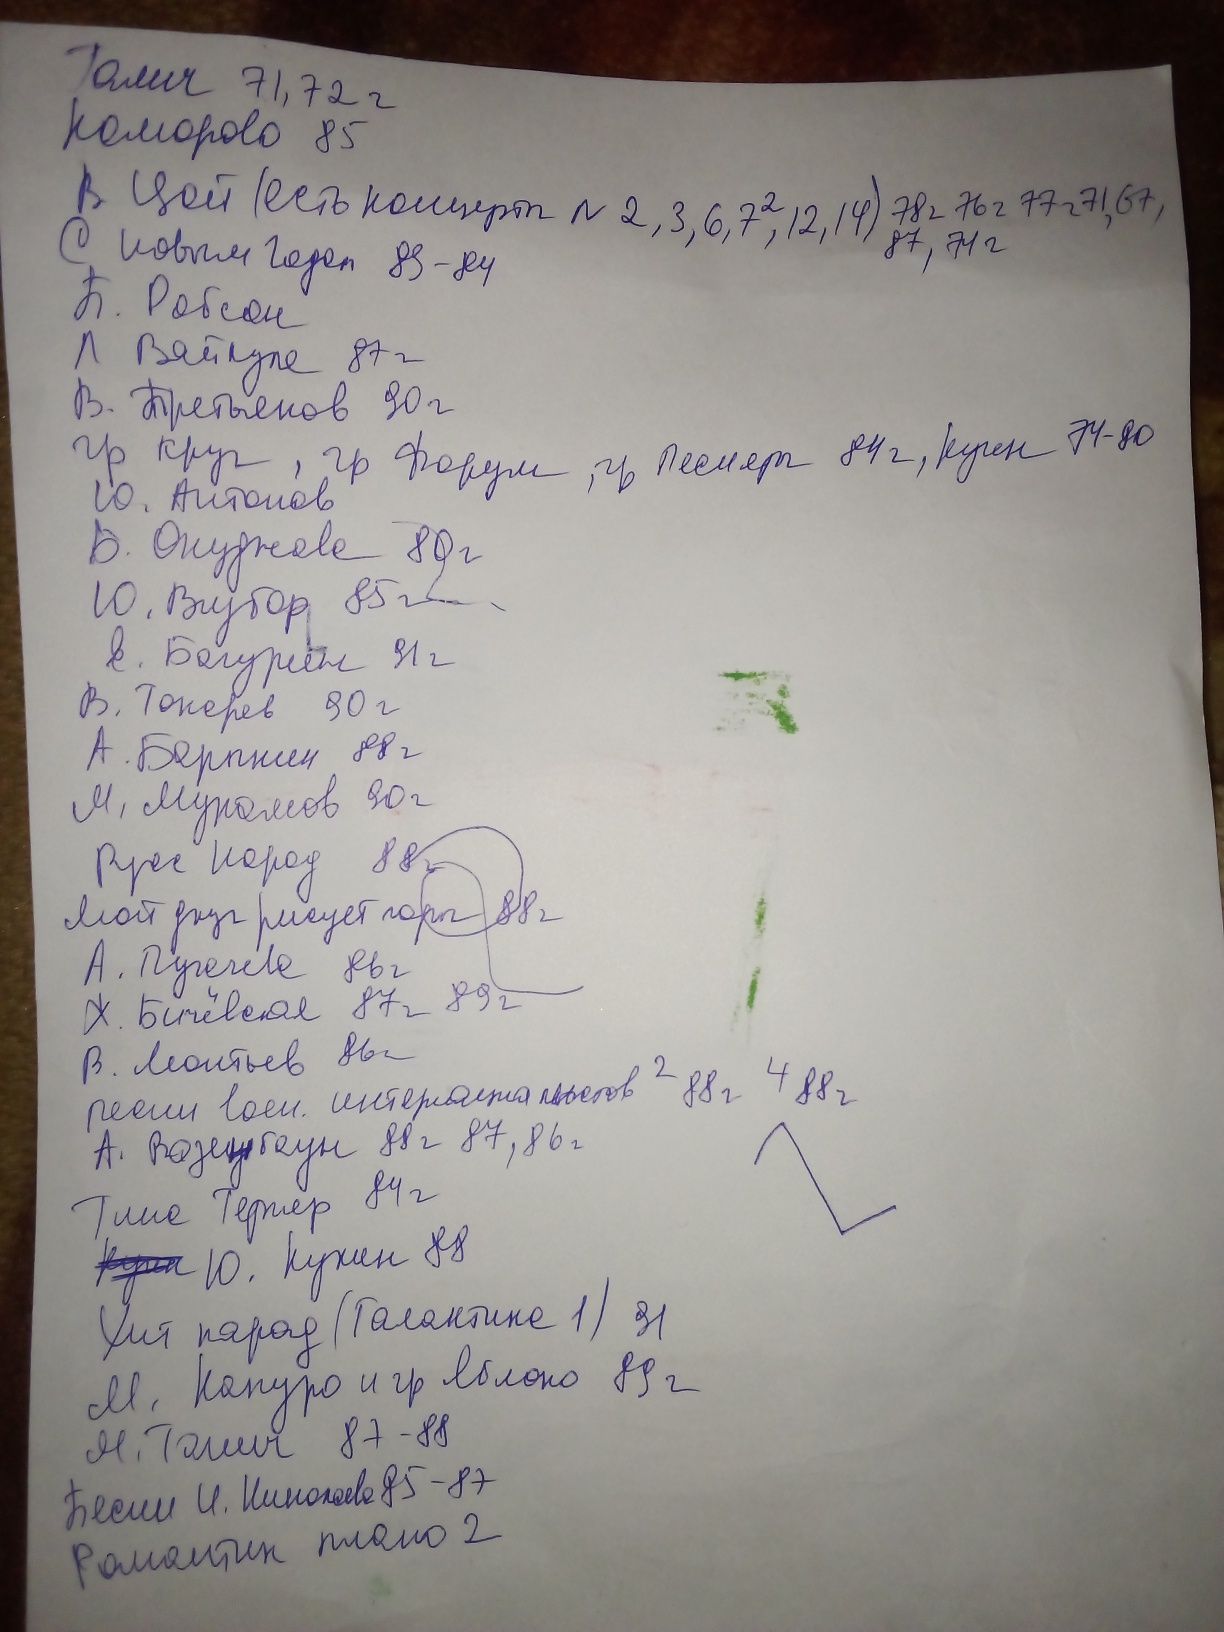 Галич 71,72 г
Комарово 85
В Цой (есть концерты N 2, 3, 6, 7², 12, 14) 78г 76г 77г 71, 67,
87, 74 г
С новым годом 83-84
П. Робсон
Л Вайкуле 87 г
В. Третьяков 90 г
гр Круг, гр Форум, гр Песняры 84 г, Кукин 74-80
Ю. Антонов
Б. Окуджава 80 г
Ю. Визбор 85 г
В. Токарев 90 г
А. Барыкин 88 г
М. Муромов 90 г
народ 88 г
Мой друг рисует горы 88 г
А. Пугачева 86 г
Ж. Бичевская 87 г 89 г
В. Леонтьев 86 г
песни воен. интернационалистов 2 88 г 4 88 г
А. Розенбаум 88 г 87, 86 г
Тина Тернер 84 г
Ю. Кукин 88
Хит парад (Галактика 1) 91
М. Капуро и гр Яблоко 89 г
М. Танич 87-88
Песни И. Николаева 85-87
Романтик пиано 2